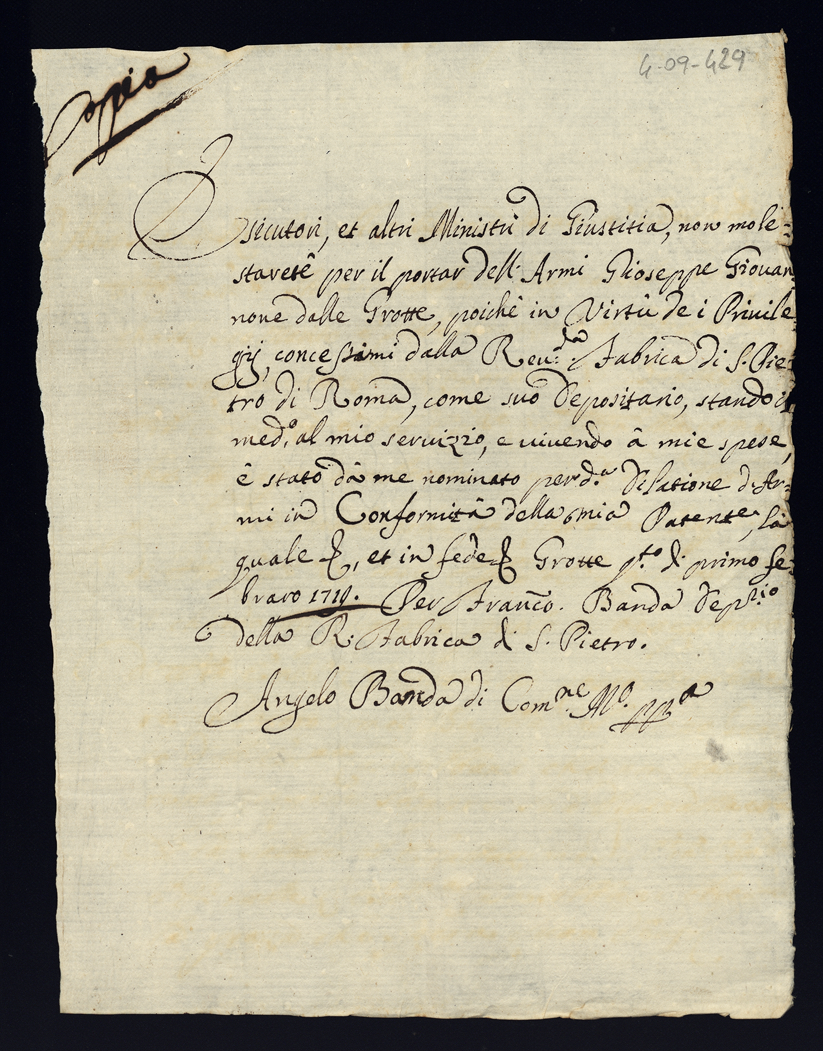 4-09-429
Copia
Esecutori, et altri Ministri di Giustitia, non mole=
staretê per il portar dell'Armi Gioseppe Giovan
none dalle Grotte, poichê in Virtù de i Privile
gij, concessimi dalla Reu:da Fabrica di S. Pie=
tro di Roma, come suo Depositario, stando i
med.o al mio servizio, e vivendo â mie spese,
ê stato dâ me nominato per d.a Delatione d'Ar=
mi in Conformitâ della mia Patente, la
quale &, et in fede & Grotte q.to dì primo fe=
braro 1719. Per Franco. Banda Dep.rio
della R. Fabrica di S. Pietro.
Angelo Banda di Com.ne M.o